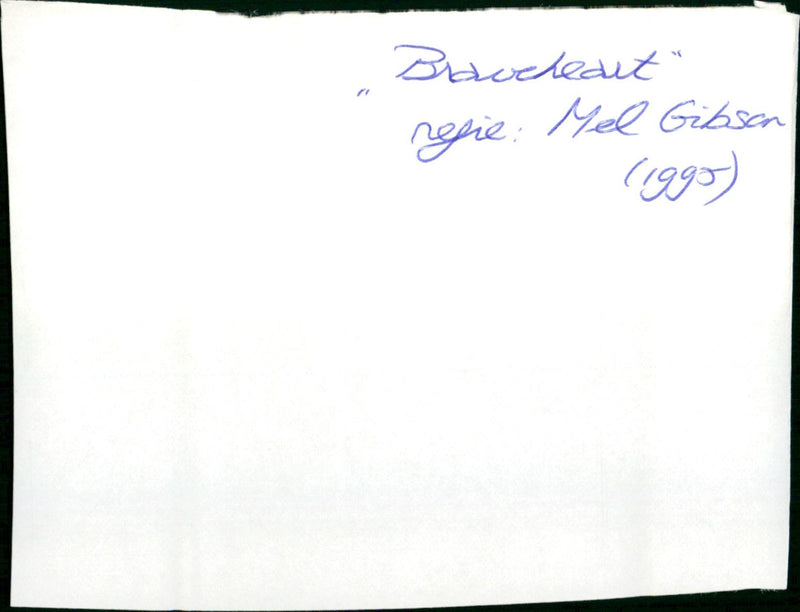 „Braveheart“
regie: Mel Gibson
(1995)